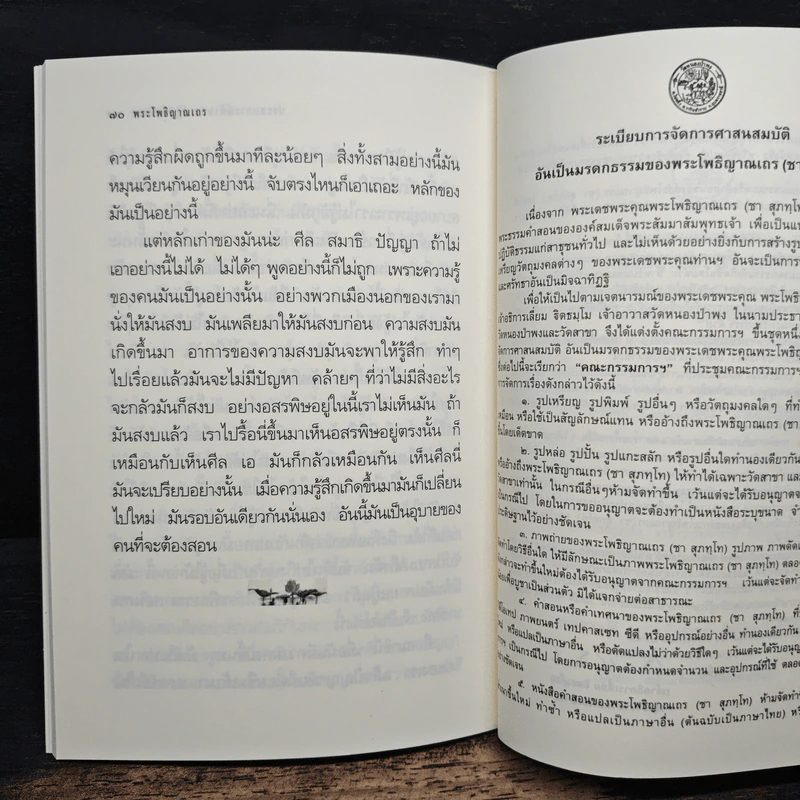 ๗๐ พระโพธิญาณเถร
ความรู้สึกผิดถูกขึ้นมาทีละน้อยๆ สิ่งทั้งสามอย่างนี้มัน
หมุนเวียนกันอยู่อย่างนี้ จับตรงไหนก็เอาเถอะ หลักของ
มันเป็นอย่างนี้
แต่หลักเก่าของมันน่ะ ศีล สมาธิ ปัญญา ถ้าไม่
เอาอย่างนี้ไม่ได้ ไม่ได้ๆ พูดอย่างนี้ก็ไม่ถูก เพราะความรู้
ของคนมันเป็นอย่างนั้น อย่างพวกเมืองนอกของเรามา
นั่งให้มันสงบ มันเพลียมาให้มันสงบก่อน ความสงบมัน
เกิดขึ้นมา อาการของความสงบมันจะพาให้รู้สึก ทำๆ
ไปเรื่อยแล้วมันจะไม่มีปัญหา คล้ายๆ ที่ว่าไม่มีสิ่งอะไร
จะกลัวมันก็สงบ อย่างอสรพิษอยู่ในนี้เราไม่เห็นมัน ถ้า
มันสงบแล้ว เราไปรื้อนี่ขึ้นมาเห็นอสรพิษอยู่ตรงนั้น ก็
เหมือนกับเห็นศีล เอ มันก็กลัวเหมือนกัน เห็นศีลนี่
มันจะเปรียบอย่างนั้น เมื่อความรู้สึกเกิดขึ้นมามันก็เปลี่ยน
ไปใหม่ มันรอบอันเดียวกันนั่นเอง อันนี้มันเป็นอุบายของ
คนที่จะต้องสอน
ระเบียบการจัดการศาสนสมบัติ
อันเป็นมรดกธรรมของพระโพธิญาณเถร (ชา
เนื่องจาก พระเดชพระคุณพระโพธิญาณเถร (ชา สุภทฺโท)
พระธรรมคำสอนขององค์สมเด็จพระสัมมาสัมพุทธเจ้า เพื่อเป็น
ปฏิบัติธรรมแก่สาธุชนทั่วไป และไม่เห็นด้วยอย่างยิ่งกับการสร้าง
เหรียญวัตถุมงคลต่างๆ ของพระเดชพระคุณท่านฯ อันจะเป็นการ
และศรัทธาอันเป็นมิจฉาทิฏฐิ
เพื่อให้เป็นไปตามเจตนารมณ์ของพระเดชพระคุณ พระโพธิ
เจ้าอธิการเลี่ยม ฐิตธมฺโม เจ้าอาวาสวัดหนองป่าพง ในนามประธาน
วัดหนองป่าพงและวัดสาขา จึงได้แต่งตั้งคณะกรรมการฯ ขึ้นชุดหนึ่ง
จัดการศาสนสมบัติ อันเป็นมรดกธรรมของพระเดชพระคุณพระโพธิ
ซึ่งต่อไปนี้จะเรียกว่า “คณะกรรมการฯ” ที่ประชุมคณะกรรมการฯ
การจัดการเรื่องดังกล่าวไว้ดังนี้
๑. รูปเหรียญ รูปพิมพ์ รูปอื่นๆ หรือวัตถุมงคลใดๆ ที่ทำ
เหมือน หรือใช้เป็นสัญลักษณ์แทน หรืออ้างถึงพระโพธิญาณเถร (ชา
ขึ้นโดยเด็ดขาด
๒. รูปหล่อ รูปปั้น รูปแกะสลัก หรือรูปอื่นใดทำนองเดียวกัน
หรืออ้างถึงพระโพธิญาณเถร (ชา สุภทฺโท) ให้ทำได้เฉพาะวัดสาขา และ
วัดสาขาเท่านั้น ในกรณีอื่นๆห้ามจัดทำขึ้น เว้นแต่จะได้รับอนุญาต
เป็นกรณีไป โดยในการขออนุญาตจะต้องทำเป็นหนังสือระบุขนาด
ประดิษฐานไว้อย่างชัดเจน
๓. ภาพถ่ายของพระโพธิญาณเถร (ชา สุภทฺโท) รูปภาพ
จัดทำโดยวิธีอื่นใด ให้มีลักษณะเป็นภาพพระโพธิญาณเถร (ชา สุภทฺโท)
ดังกล่าวจะทำขึ้นใหม่ต้องได้รับอนุญาตจากคณะกรรมการฯ เว้นแต่จะจัดทำ
น้อยเพื่อบูชาเป็นส่วนตัว มิได้แจกจ่ายต่อสาธารณะ
๔. คำสอนหรือคำเทศนาของพระโพธิญาณเถร (ชา สุภทฺโท)
วีดีโอเทป ภาพยนตร์ เทปคาสเซท ซีดี หรืออุปกรณ์อย่างอื่น ทำนองเดียวกัน
ใหม่ หรือแปลเป็นภาษาอื่น หรือดัดแปลงไม่ว่าด้วยวิธีใดๆ เว้นแต่จะได้รับ
เป็นกรณีไป โดยการอนุญาตต้องกำหนดจำนวน และอุปกรณ์ที่ใช้
อย่างชัดเจน
๕. หนังสือคำสอนของพระโพธิญาณเถร (ชา สุภทฺโท) ห้ามจัดทำ
ขึ้นใหม่ ทำซ้ำ หรือแปลเป็นภาษาอื่น (ต้นฉบับเป็นภาษาไทย)